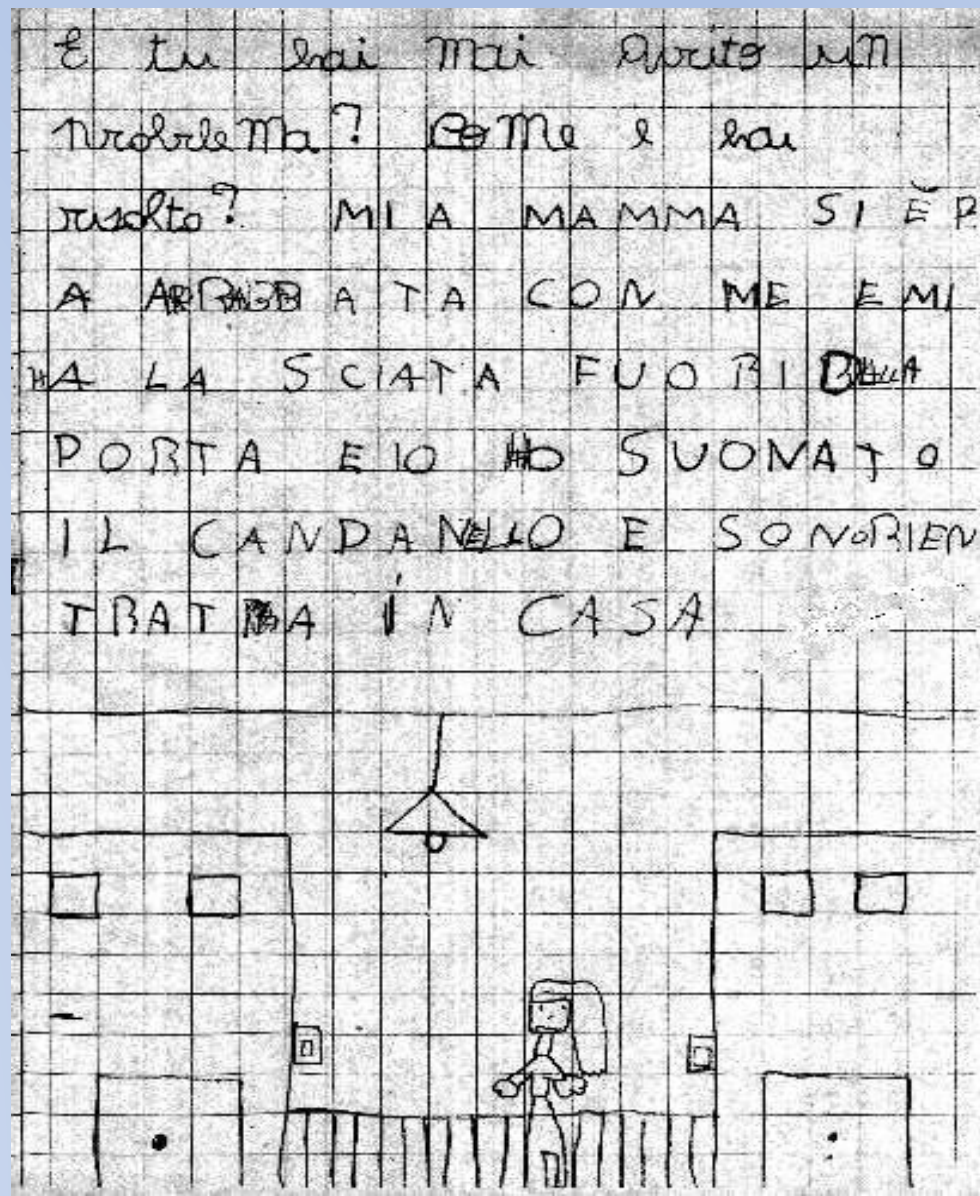 E tu hai mai avuto un
problema? Come l hai
risolto? MIA MAMMA SI ĔR
A ARRABBIATA CON ME E MI
HA LA SCIATA FUORI DALLA
PORTA E IO HO SUONATO
IL CANDANELLO E SONO RIEN
TRATRA IN CASA